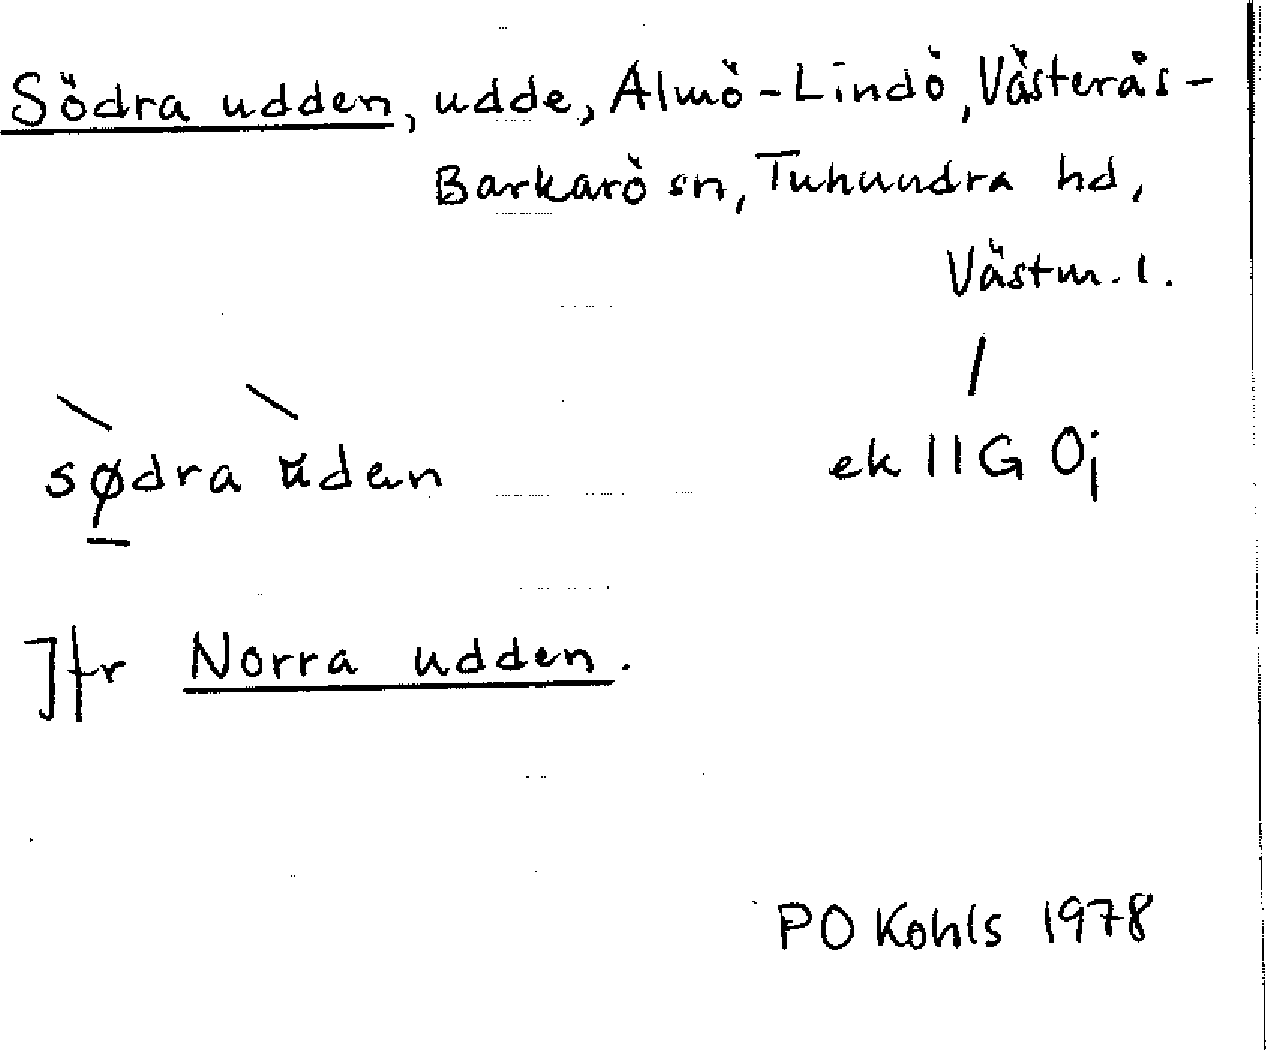 Södra udden, udde, Almö-Lindö, Västerås-
Barkarö sn, Tuhundra hd,
Västm. l.
sø̱dra ùden ek 11G 0j
Jfr Norra udden.
PO Kohls 1978